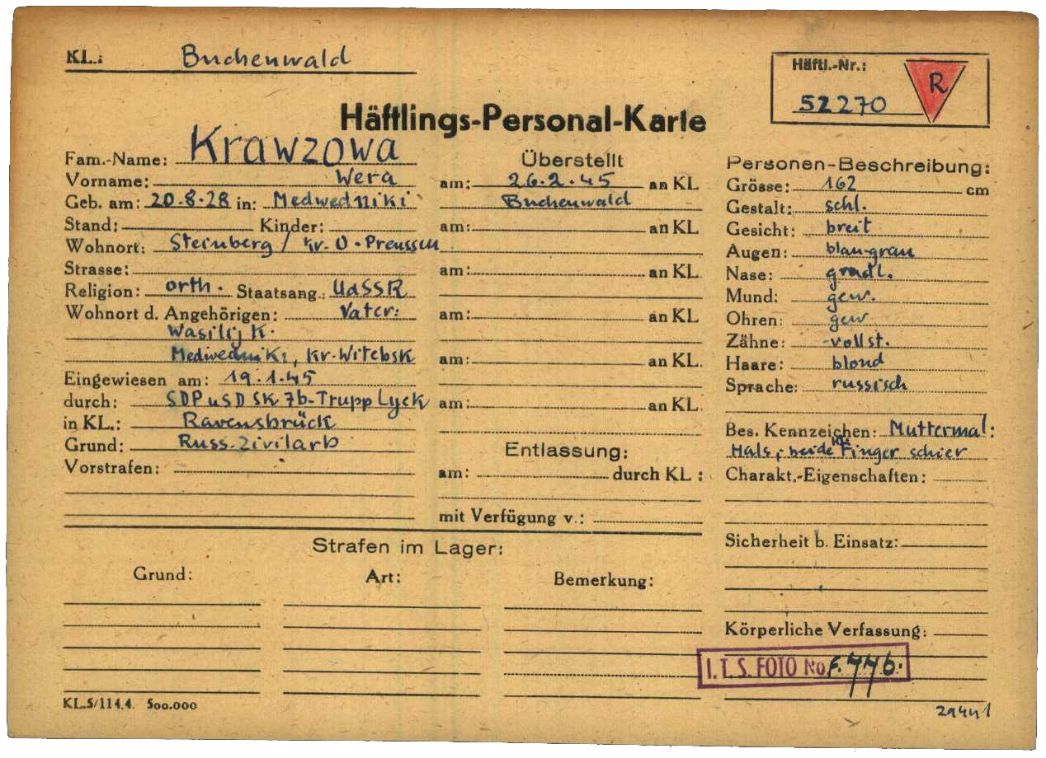 KL.: Buchenwald
Häftl.-Nr.:
52270 R
Häftlings-Personal-Karte
Fam.-Name: Krawzowa
Vorname: Wera
Geb. am: 20.8.28 in: Medwedniki
Stand: Kinder:
Wohnort: Steinberg / Kr. O-Preussen
Strasse:
Religion: orth. Staatsang. UdSSR
Wohnort d. Angehörigen: Vater:
Wasilij K.
Medwedniki, Kr. Witebsk
Eingewiesen am: 19.1.45
durch: SDPuSD SK 7b-Trupp Lyck
in KL.: Ravensbrück
Grund: Russ-Zivilarb
Vorstrafen:
Überstellt
am: 26.2.45 an KL
Buchenwald
am: an KL
am: an KL
am: an KL
am: an KL
am: an KL
Entlassung:
am: durch KL:
mit Verfügung v.:
Personen-Beschreibung:
Grösse: 162 cm
Gestalt: schl.
Gesicht: breit
Augen: blau-grau
Nase: gradl.
Mund: gew.
Ohren: gew
Zähne: vollst.
Haare: blond
Sprache: russisch
Bes. Kennzeichen: Muttermal:
Hals, beide Finger schier
Charakt.-Eigenschaften:
Sicherheit b. Einsatz:
Körperliche Verfassung:
Strafen im Lager:
Grund: Art: Bemerkung:
I.T.S. FOTO No F. 446.
KL.5/114.4. 500.000
29441